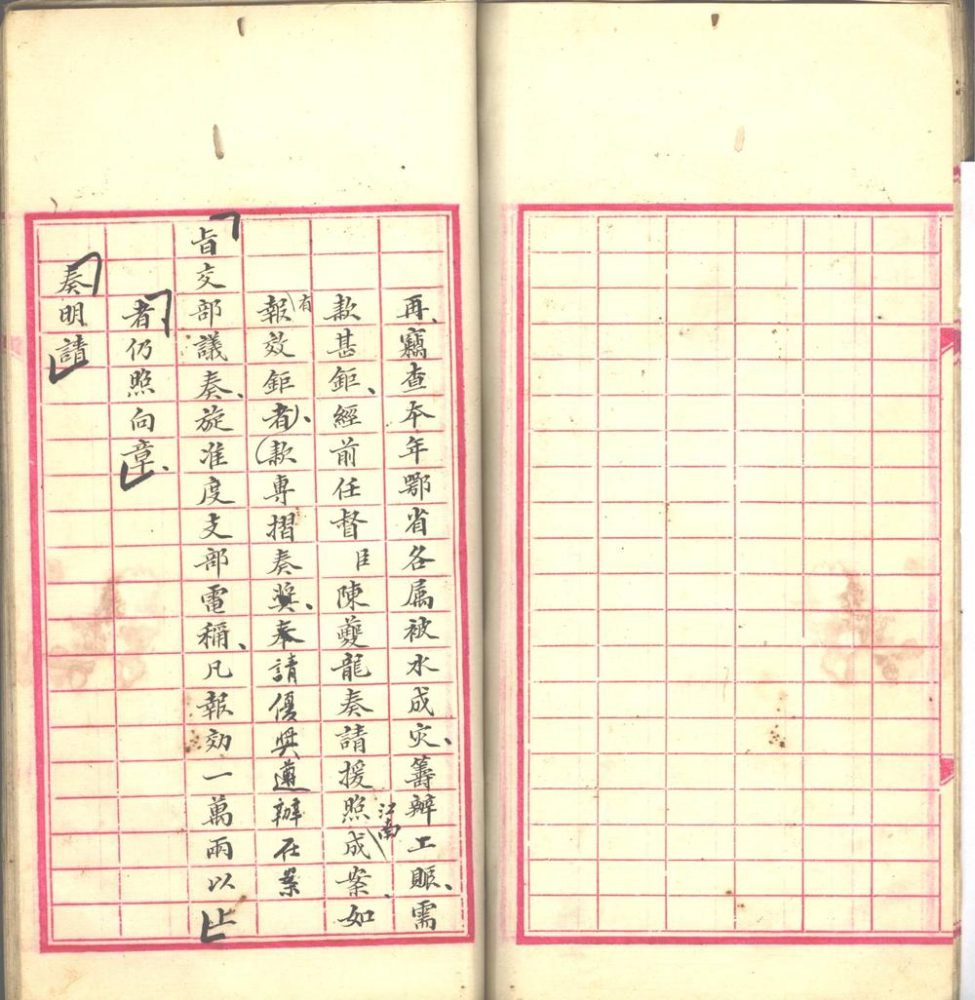 再竊查本年鄂省各属被水成灾、籌辦工賑、需
款甚鉅、經前任督臣陳夔龍奏請援照江南成案、如
有報效鉅者、款專摺奏獎、奉請優獎遵辦在案
旨交部議奏、旋准度支部電稱、凡報効一萬兩以上
者仍照向章、
奏明請